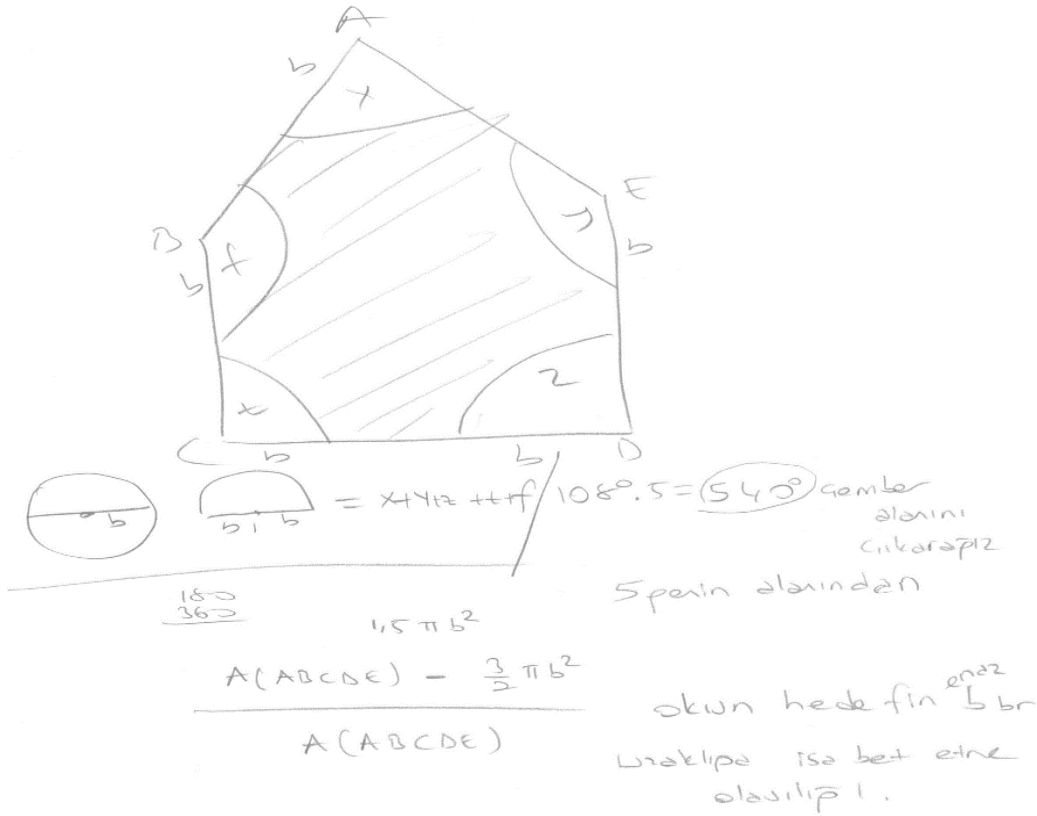 A
b
x
E
y
b
B
b
f
t
z
C
b
b
D
b
b b
= x+y+z+t+f / 108°.5 = 540° Çember
alanını
çıkarağız
5 genin alanından
180
360
1,5 π b²
A(ABCDE) - 3/2 π b²
A(ABCDE)
okun hedefin enaz b br
uzaklığa isabet etme
olasılığı.